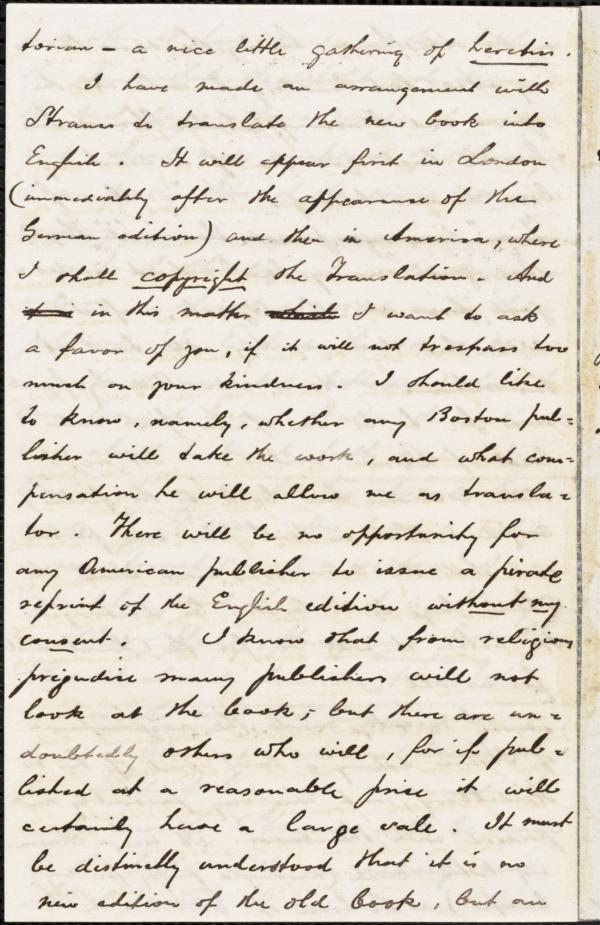 torian – a nice little gathering of heretics.
I have made an arrangement with
Strauss to translate the new book into
English. It will appear first in London
(immediately after the appearance of the
German edition) and then in America, where
I shall copyright the Translation. And
in this matter which I want to ask
a favor of you, if it will not trespass too
much on your kindness. I should like
to know, namely, whether any Boston pub=
lisher will take the work, and what com=
pensation he will allow me as transla=
tor. There will be no opportunity for
any American publisher to issue a pirate
reprint of the English edition without my
consent. I know that from religious
prejudice many publishers will not
look at the book; but there are un=
doubtedly others who will, for if pub=
lished at a reasonable price it will
certainly have a large sale. It must
be distinctly understood that it is no
new edition of the old book, but an